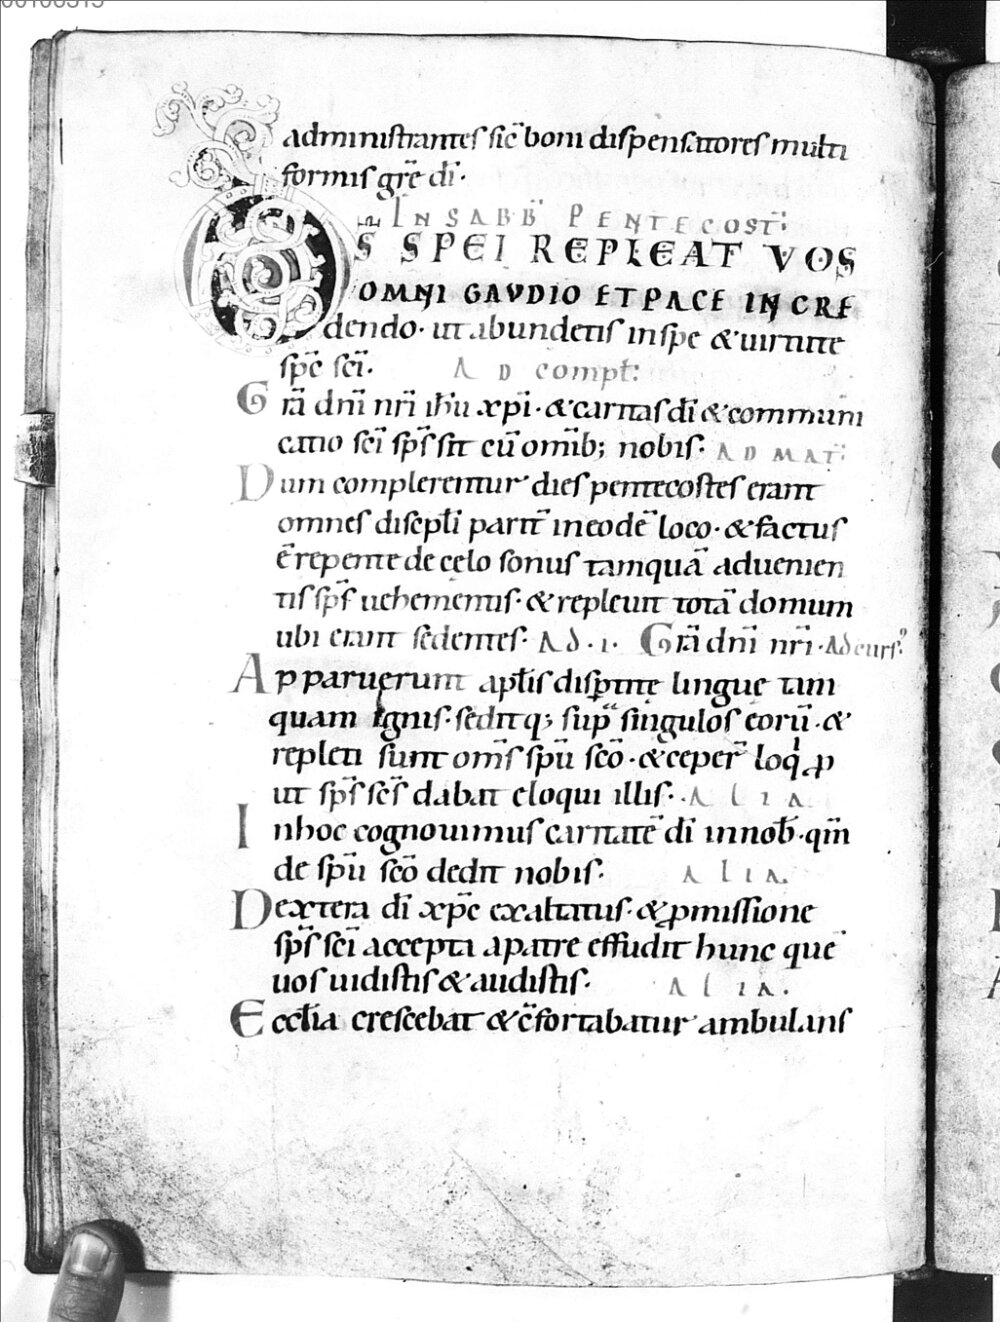 administrantes sic̄ boni dispensatores multi
formis gr̄e dī·
IN SABB̄ PENTECOST̄:
DS SPEI REPLEAT VOS
OMNI GAVDIO ET PACE IN CRE
dendo· ut abundetis in spe & uirtute
sp̄c sc̄i. AD compł:
Gr̄a dn̄i nr̄i ih̄u xp̄i· & caritas dī & communi
catio sc̄i sp̄s sit cū om̄ib; nobis· AD MAT̄:
Dum complerentur dies pentecostes erant
omnes discipłi parit̄ in eodē loco· & factus
ē repente de celo sonus tamquā aduenien
tis sp̄s uehementis· & repleuit totā domum
ubi erant sedentes· Ad ·i· Gr̄a dn̄i nr̄i· Ad curs̓
Apparuerunt apłis disp̱tite lingue tam
quam ignis· seditq; sup̱ singulos eorū· &
repleti sunt om̄s sp̄u sc̄o· & ceper̄ loqi ꝓ
ut sp̄s sc̄s dabat eloqui illis· ALIA
In hoc cognouimus caritatē dī in nob̄· qm̄
de sp̄u sc̄o dedit nobis· ALIA.
Dextera dī xp̄c exaltatus· & ꝓmissione
sp̄s sc̄i accepta a patre effudit hunc quē
uos uidistis & audistis· ALIA.
Eccłia crescebat & c̄fortabatur ambulans